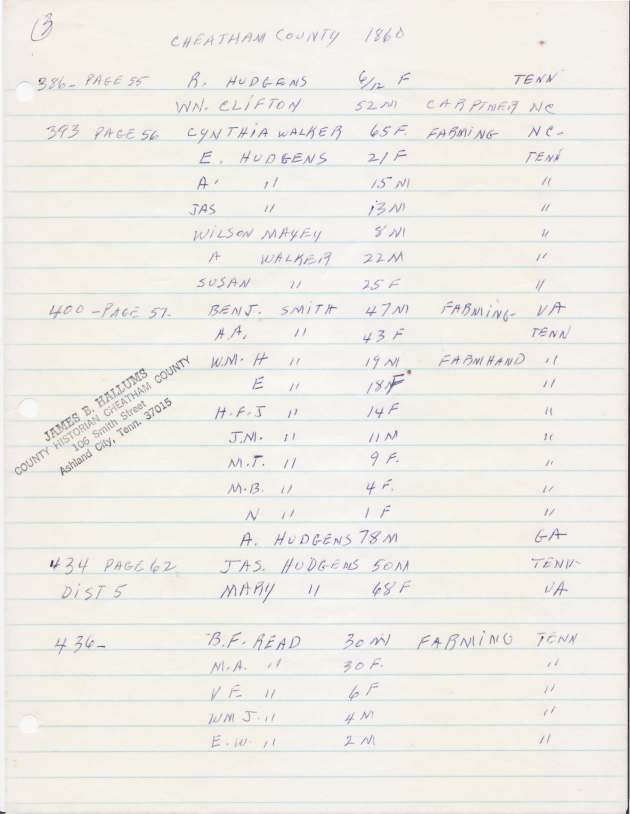 3
CHEATHAM COUNTY 1860
386- PAGE 55 R. HUDGENS 6/12 F TENN
WN. CLIFTON 52 M CARPTNER NC
393 PAGE 56 CYNTHIA WALKER 65 F. FARMING NC-
E. HUDGENS 21 F TENN
A. " 15 M "
JAS " 13 M "
WILSON MAYEY 8 M "
A WALKER 22 M "
SUSAN " 25 F "
400 - PAGE 57. BENJ. SMITH 47 M FARMING- VA
A.A. " 43 F TENN
WM. H " 19 M FARMHAND "
E " 18 F "
H.F.J " 14 F "
J.M. " 11 M "
M.T. " 9 F. "
M.B. " 4 F. "
N " 1 F "
A. HUDGENS 78 M GA-
434 PAGE 62 JAS. HUDGENS 50 M TENN-
DIST 5 MARY " 68 F VA
436- B.F. READ 30 M FARMING TENN
M.A. " 30 F. "
V F. " 6 F "
WM J. " 4 M "
E.W. " 2 M "
JAMES B. HALLUMS
COUNTY HISTORIAN CHEATHAM COUNTY
106 Smith Street
Ashland City, Tenn. 37015